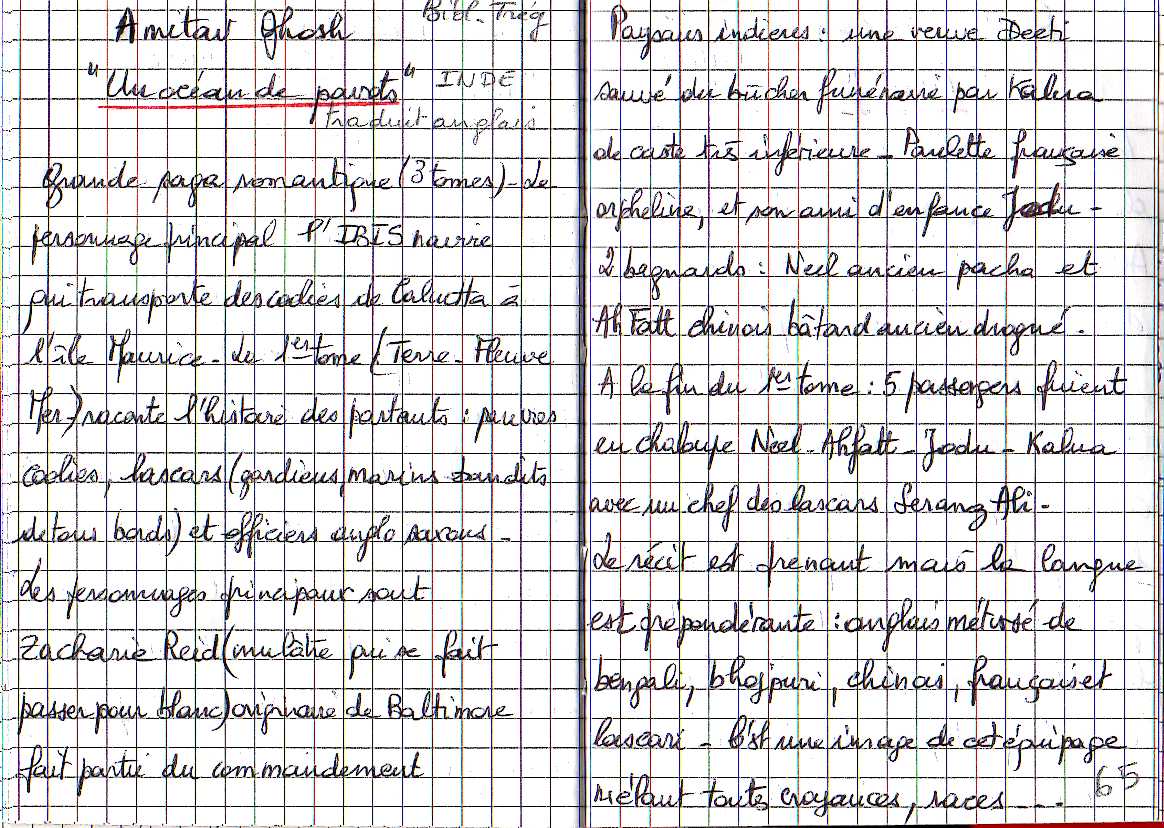 Amitav Ghosh Bibl. Trég
"Un océan de pavots" INDE
traduit anglais
Grande saga romantique (3 tomes) - Le
personnage principal l'IBIS navire
qui transporte des coolies de Calcutta à
l'île Maurice - Le 1er tome (Terre - Fleuve
Mer -) raconte l'histoire des partants : pauvres
coolies, lascars (gardiens, marins bandits
de tous bords) et officiers anglo saxons -
Les personnages principaux sont
Zacharie Reid (mulâtre qui se fait
passer pour blanc) originaire de Baltimore
fait partie du commandement
Paysans indiens : une veuve Deeti
sauvé du bûcher funéraire par Kalua
de caste très inférieure - Paulette française
orpheline, et son ami d'enfance Jodu -
2 bagnards : Neel ancien pacha et
Ah Fatt chinois bâtard ancien drogué.
A la fin du 1er tome : 5 passagers fuient
en chaloupe Neel - Ahfatt - Jodu - Kalua
avec un chef des lascars Serang Ali -
Le récit est prenant mais la langue
est prépondérante : anglais métissé de
bengali, bhojpuri, chinois, français et
lascari - C'est une image de cet équipage
mélant toutes croyances, races ---- 65